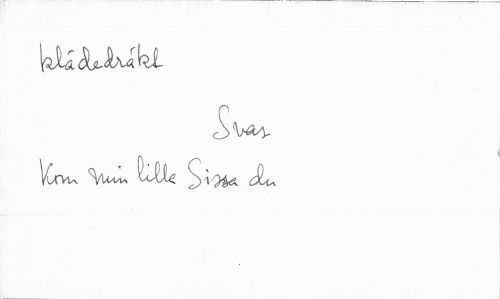 klädedräkt
Svar
Kom min lilla Sissa du